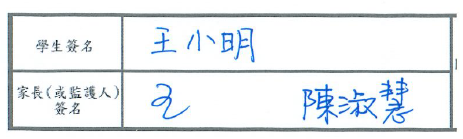 學生簽名 王小明
家長(或監護人)
簽名 陳淑慧